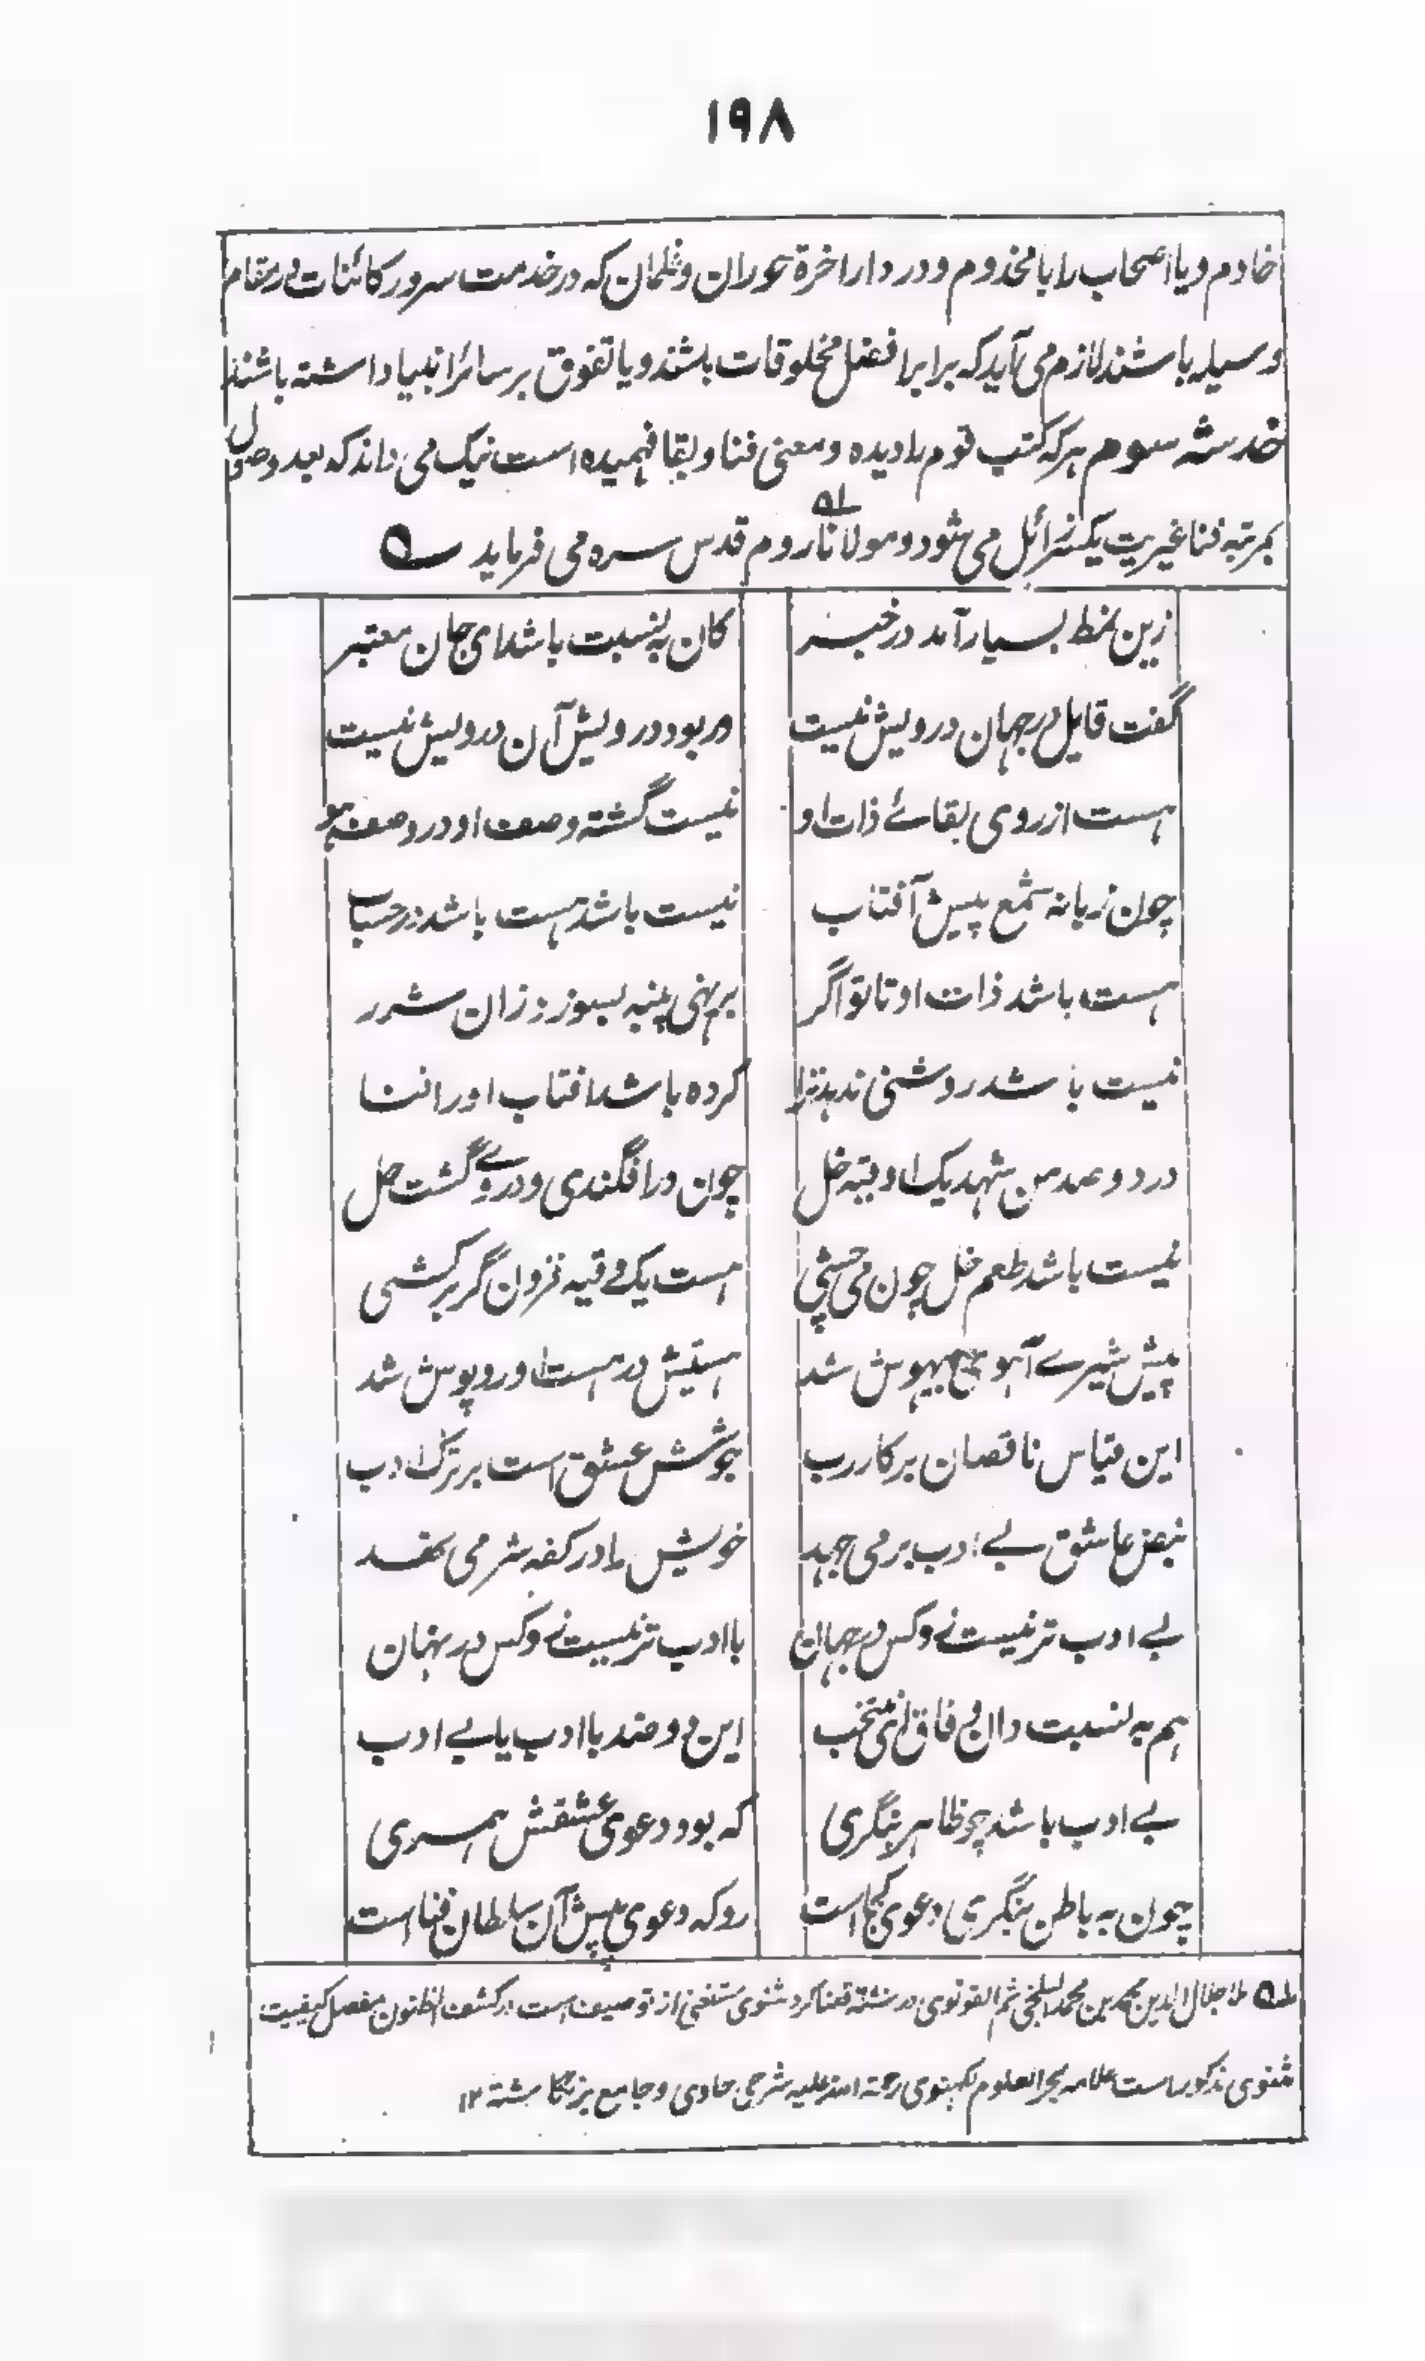 ۱۹۸
خادم و یا اصحاب را با مخذوم و در دار اخرة حوران و غلمان که در خدمت سرور کائنات در مقام
وسیله باشند لازم می آید که برابر افضل مخلوقات باشند و یا تفوق بر سائر انبیا داشته باشند
خدشه سوم هر که کتب قوم را دیده و معنی فنا و بقا فهمیده است نیک می داند که بعد وصول
بمرتبه فنا غیریت یکسر زائل می شود و مولانا روم قدس سره می فرماید
زین نمط بسیار آمد در خبر کان به نسبت باشد ای جان معتبر
گفت قایل در جهان درویش نیست ور بود درویش آن درویش نیست
هست از روی بقائے ذات او نیست گشته وصف او در وصف هو
چون زبانه شمع پیش آفتاب نیست باشد هست باشد در حساب
هست باشد ذات او تا تو اگر برنهی پنبه بسوزد زان شرر
نیست باشد روشنی ندهد ترا کرده باشد افتاب او را فنا
در دو صد من شهد یک اوقیه خل چون در افگندی و در وے گشت حل
نیست باشد طعم خل چون می چشی هست یک وقیه فزون گر برکشی
پیش شیرے آهو بیهوش شد هستیش در هست او روپوش شد
این قیاس ناقصان بر کار رب جوشش عشق است بر ترک ادب
نبض عاشق بے ادب بر می جهد خویش را در کفه شر می نهد
بے ادب تر نیست زو کس در جهان با ادب تر نیست زو کس در نهان
هم به نسبت دان وفاق ای منتخب این دو ضد با ادب یا بے ادب
بے ادب باشد چو ظاهر بنگری که بود دعوی عشقش همسری
چون به باطن بنگری دعوی کجا است رو که دعوی پیش آن سلطان فنا است
ملا جلال الدین محمد بن محمد البلخی ثم القونوی در قضا کرد مثنوی مستغنی از توصیف است در کشف الظنون مفصل کیفیت
مثنوی مذکور است علامه بحر العلوم لکهنوی رحمة الله علیه شرحی حاوی و جامع بر نگاشته ۱۲